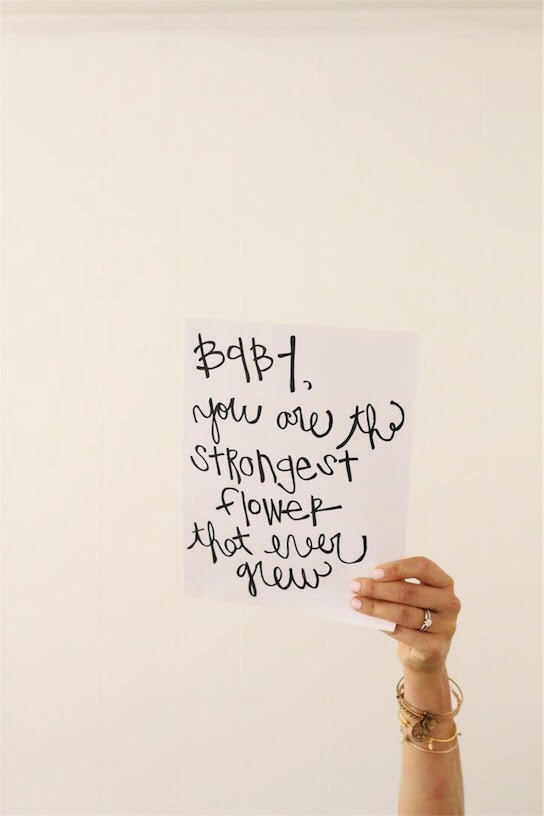 BABY,
you are the
stRongest
floweR
that ever
grew